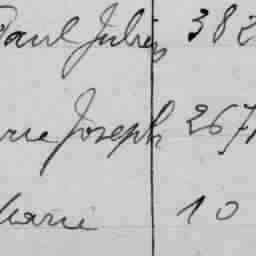 Paul Julien 382
rre Joseph 267
Marie 10